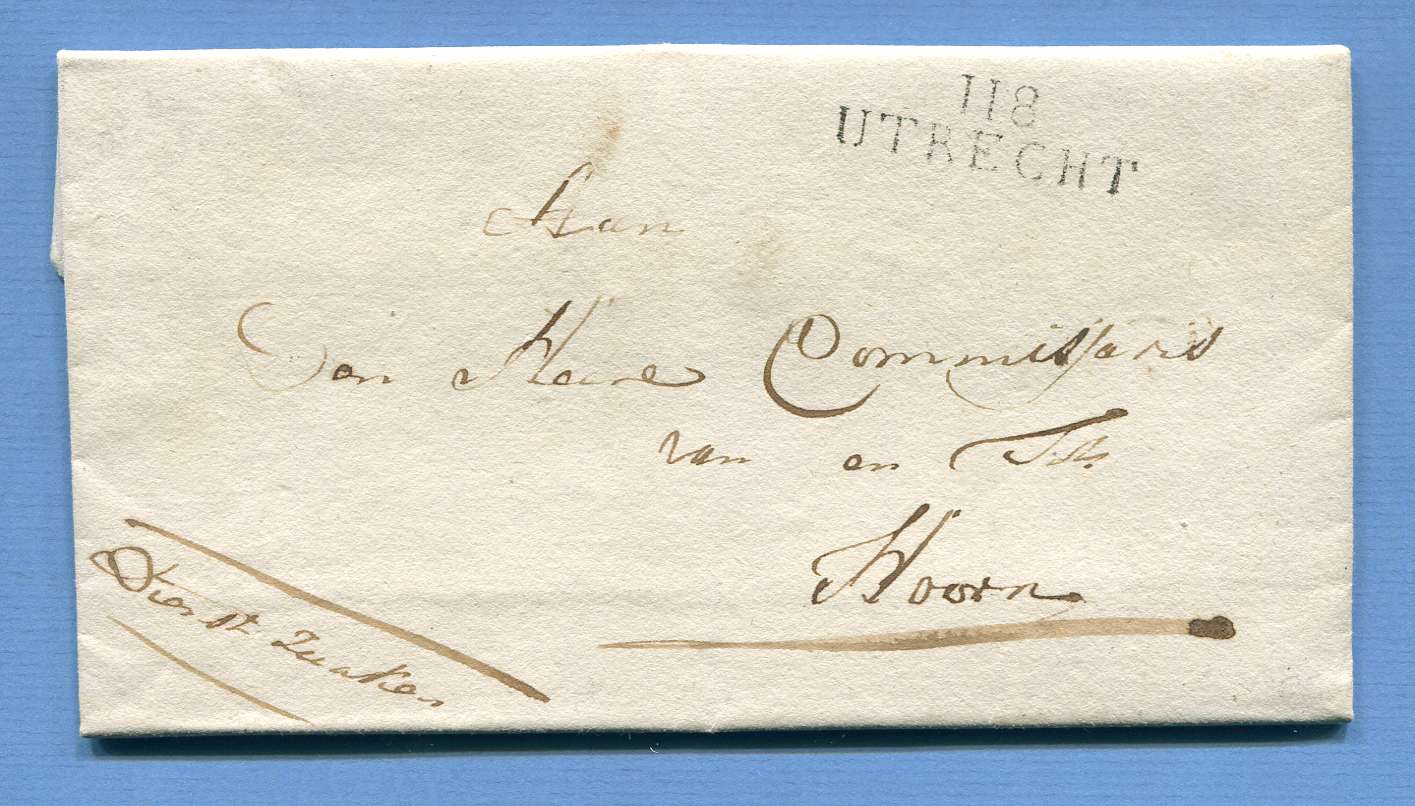 118
UTRECHT
Aan
Den Heere Commissaris
van en
Hoorn
Dienst Zaaken